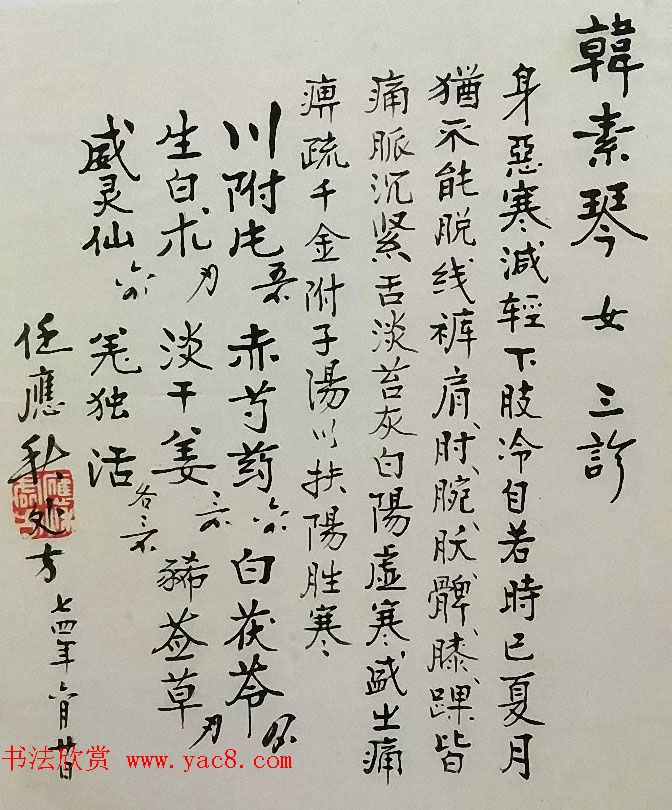 韓素琴 女 三診
身惡寒減轻下肢冷自若時已夏月
猶不能脱线裤肩、肘、腕、肷、髀、膝、踝皆
痛脈沉紧舌淡苔灰白陽虚寒盛之痛
痹疏千金附子湯以扶陽胜寒
川附片 赤芍药 白茯苓
生白术 淡干姜 三钱 豨莶草
威灵仙 六钱 羌独活 各三钱
任應秋处方 七四年六月
书法欣赏 www.yac8.com